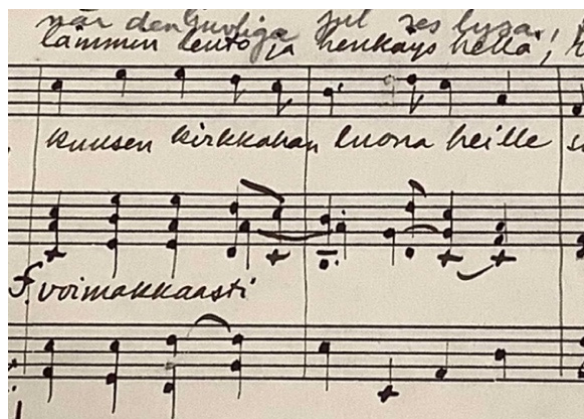 när den ljuvliga jul ses lysa,
lämmin lento ja henkäys hellä,
kuusen kirkkahan luona heille
f voimakkaasti